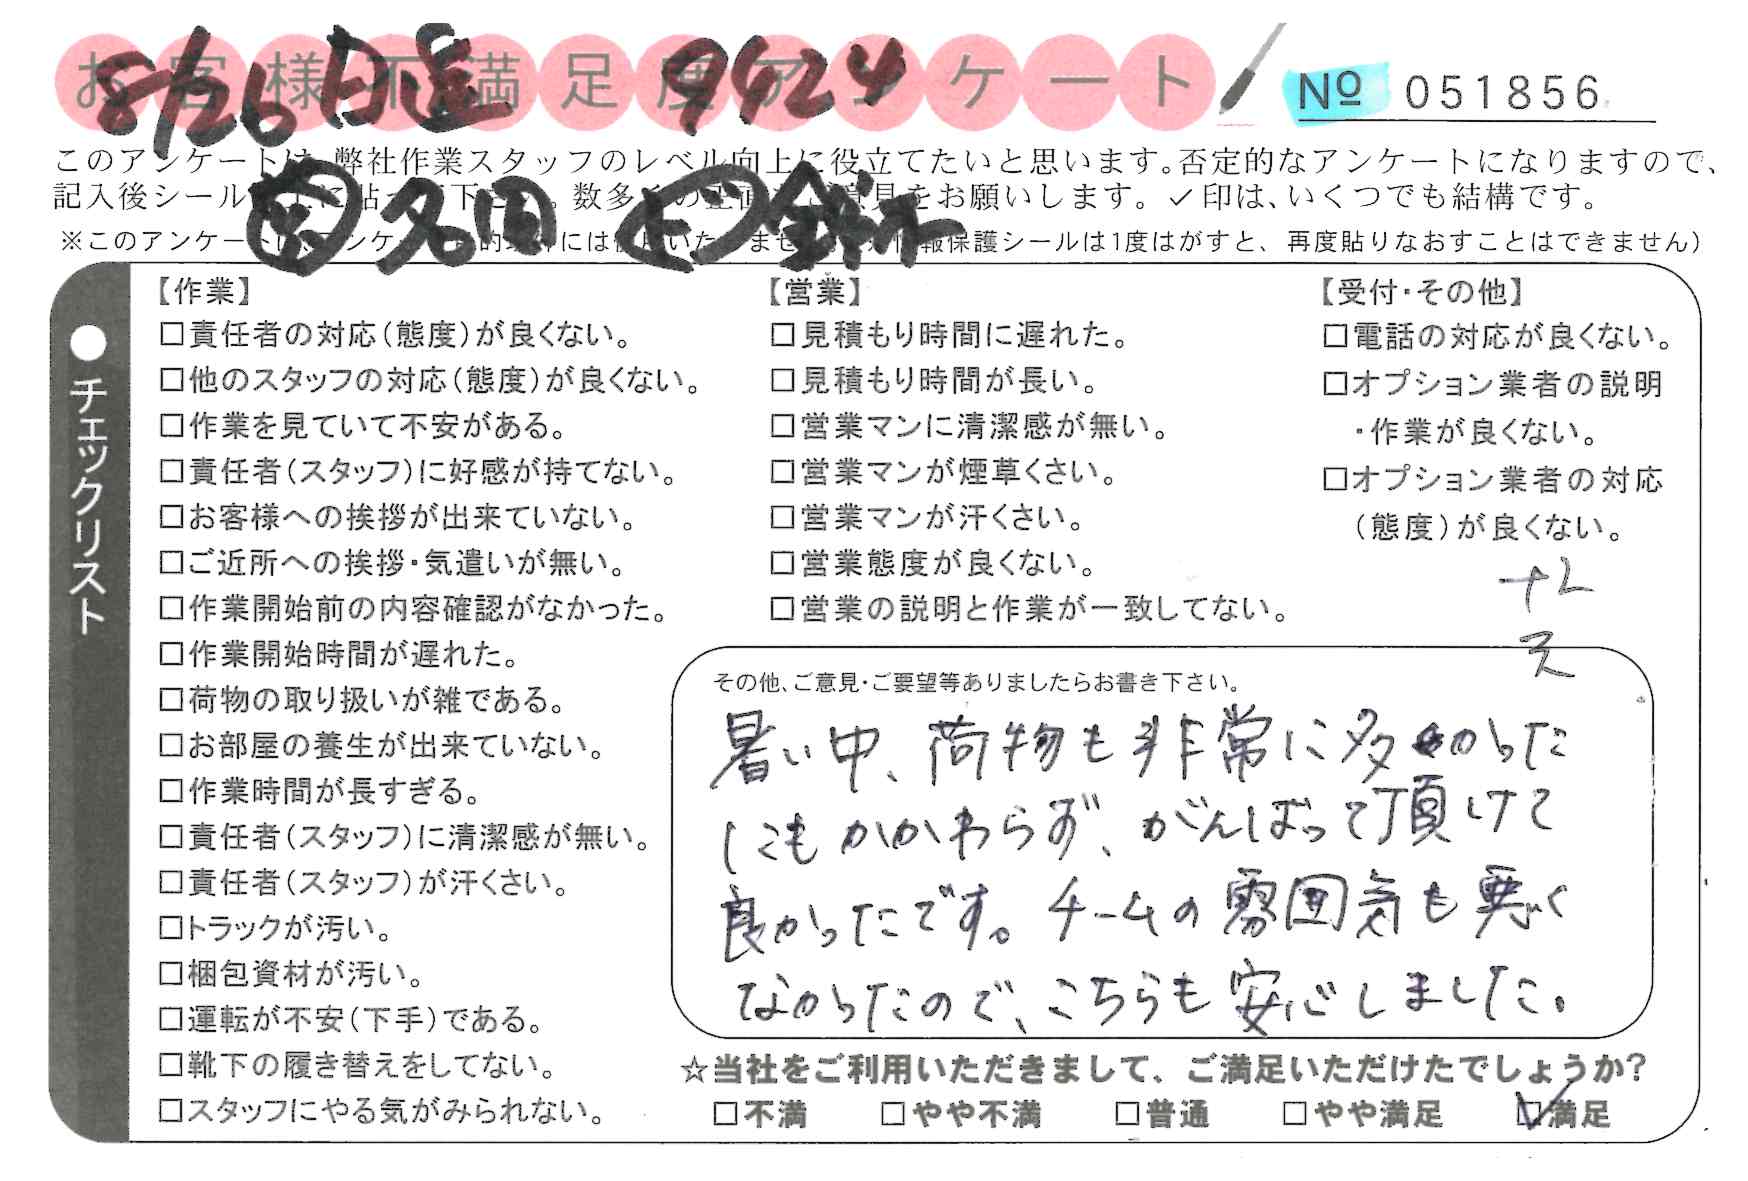 お客様不満足度アンケート
8/26 9424
№ 051856
このアンケートは、弊社作業スタッフのレベル向上に役立てたいと思います。否定的なアンケートになりますので、
記入後シール 数多 をお願いします。✓印は、いくつでも結構です。
※このアンケート 保護シールは1度はがすと、再度貼りなおすことはできません)
●チェックリスト
【作業】
□責任者の対応(態度)が良くない。
□他のスタッフの対応(態度)が良くない。
□作業を見ていて不安がある。
□責任者(スタッフ)に好感が持てない。
□お客様への挨拶が出来ていない。
□ご近所への挨拶・気遣いが無い。
□作業開始前の内容確認がなかった。
□作業開始時間が遅れた。
□荷物の取り扱いが雑である。
□お部屋の養生が出来ていない。
□作業時間が長すぎる。
□責任者(スタッフ)に清潔感が無い。
□責任者(スタッフ)が汗くさい。
□トラックが汚い。
□梱包資材が汚い。
□運転が不安(下手)である。
□靴下の履き替えをしてない。
□スタッフにやる気がみられない。
【営業】
□見積もり時間に遅れた。
□見積もり時間が長い。
□営業マンに清潔感が無い。
□営業マンが煙草くさい。
□営業マンが汗くさい。
□営業態度が良くない。
□営業の説明と作業が一致してない。
【受付・その他】
□電話の対応が良くない。
□オプション業者の説明
・作業が良くない。
□オプション業者の対応
(態度)が良くない。
その他、ご意見・ご要望等ありましたらお書き下さい。
暑い中、荷物も非常に多かった
にもかかわらず、がんばって頂けて
良かったです。チームの雰囲気も悪く
なかったので、こちらも安心しました。
☆当社をご利用いただきまして、ご満足いただけたでしょうか?
□不満 □やや不満 □普通 □やや満足 ☑満足